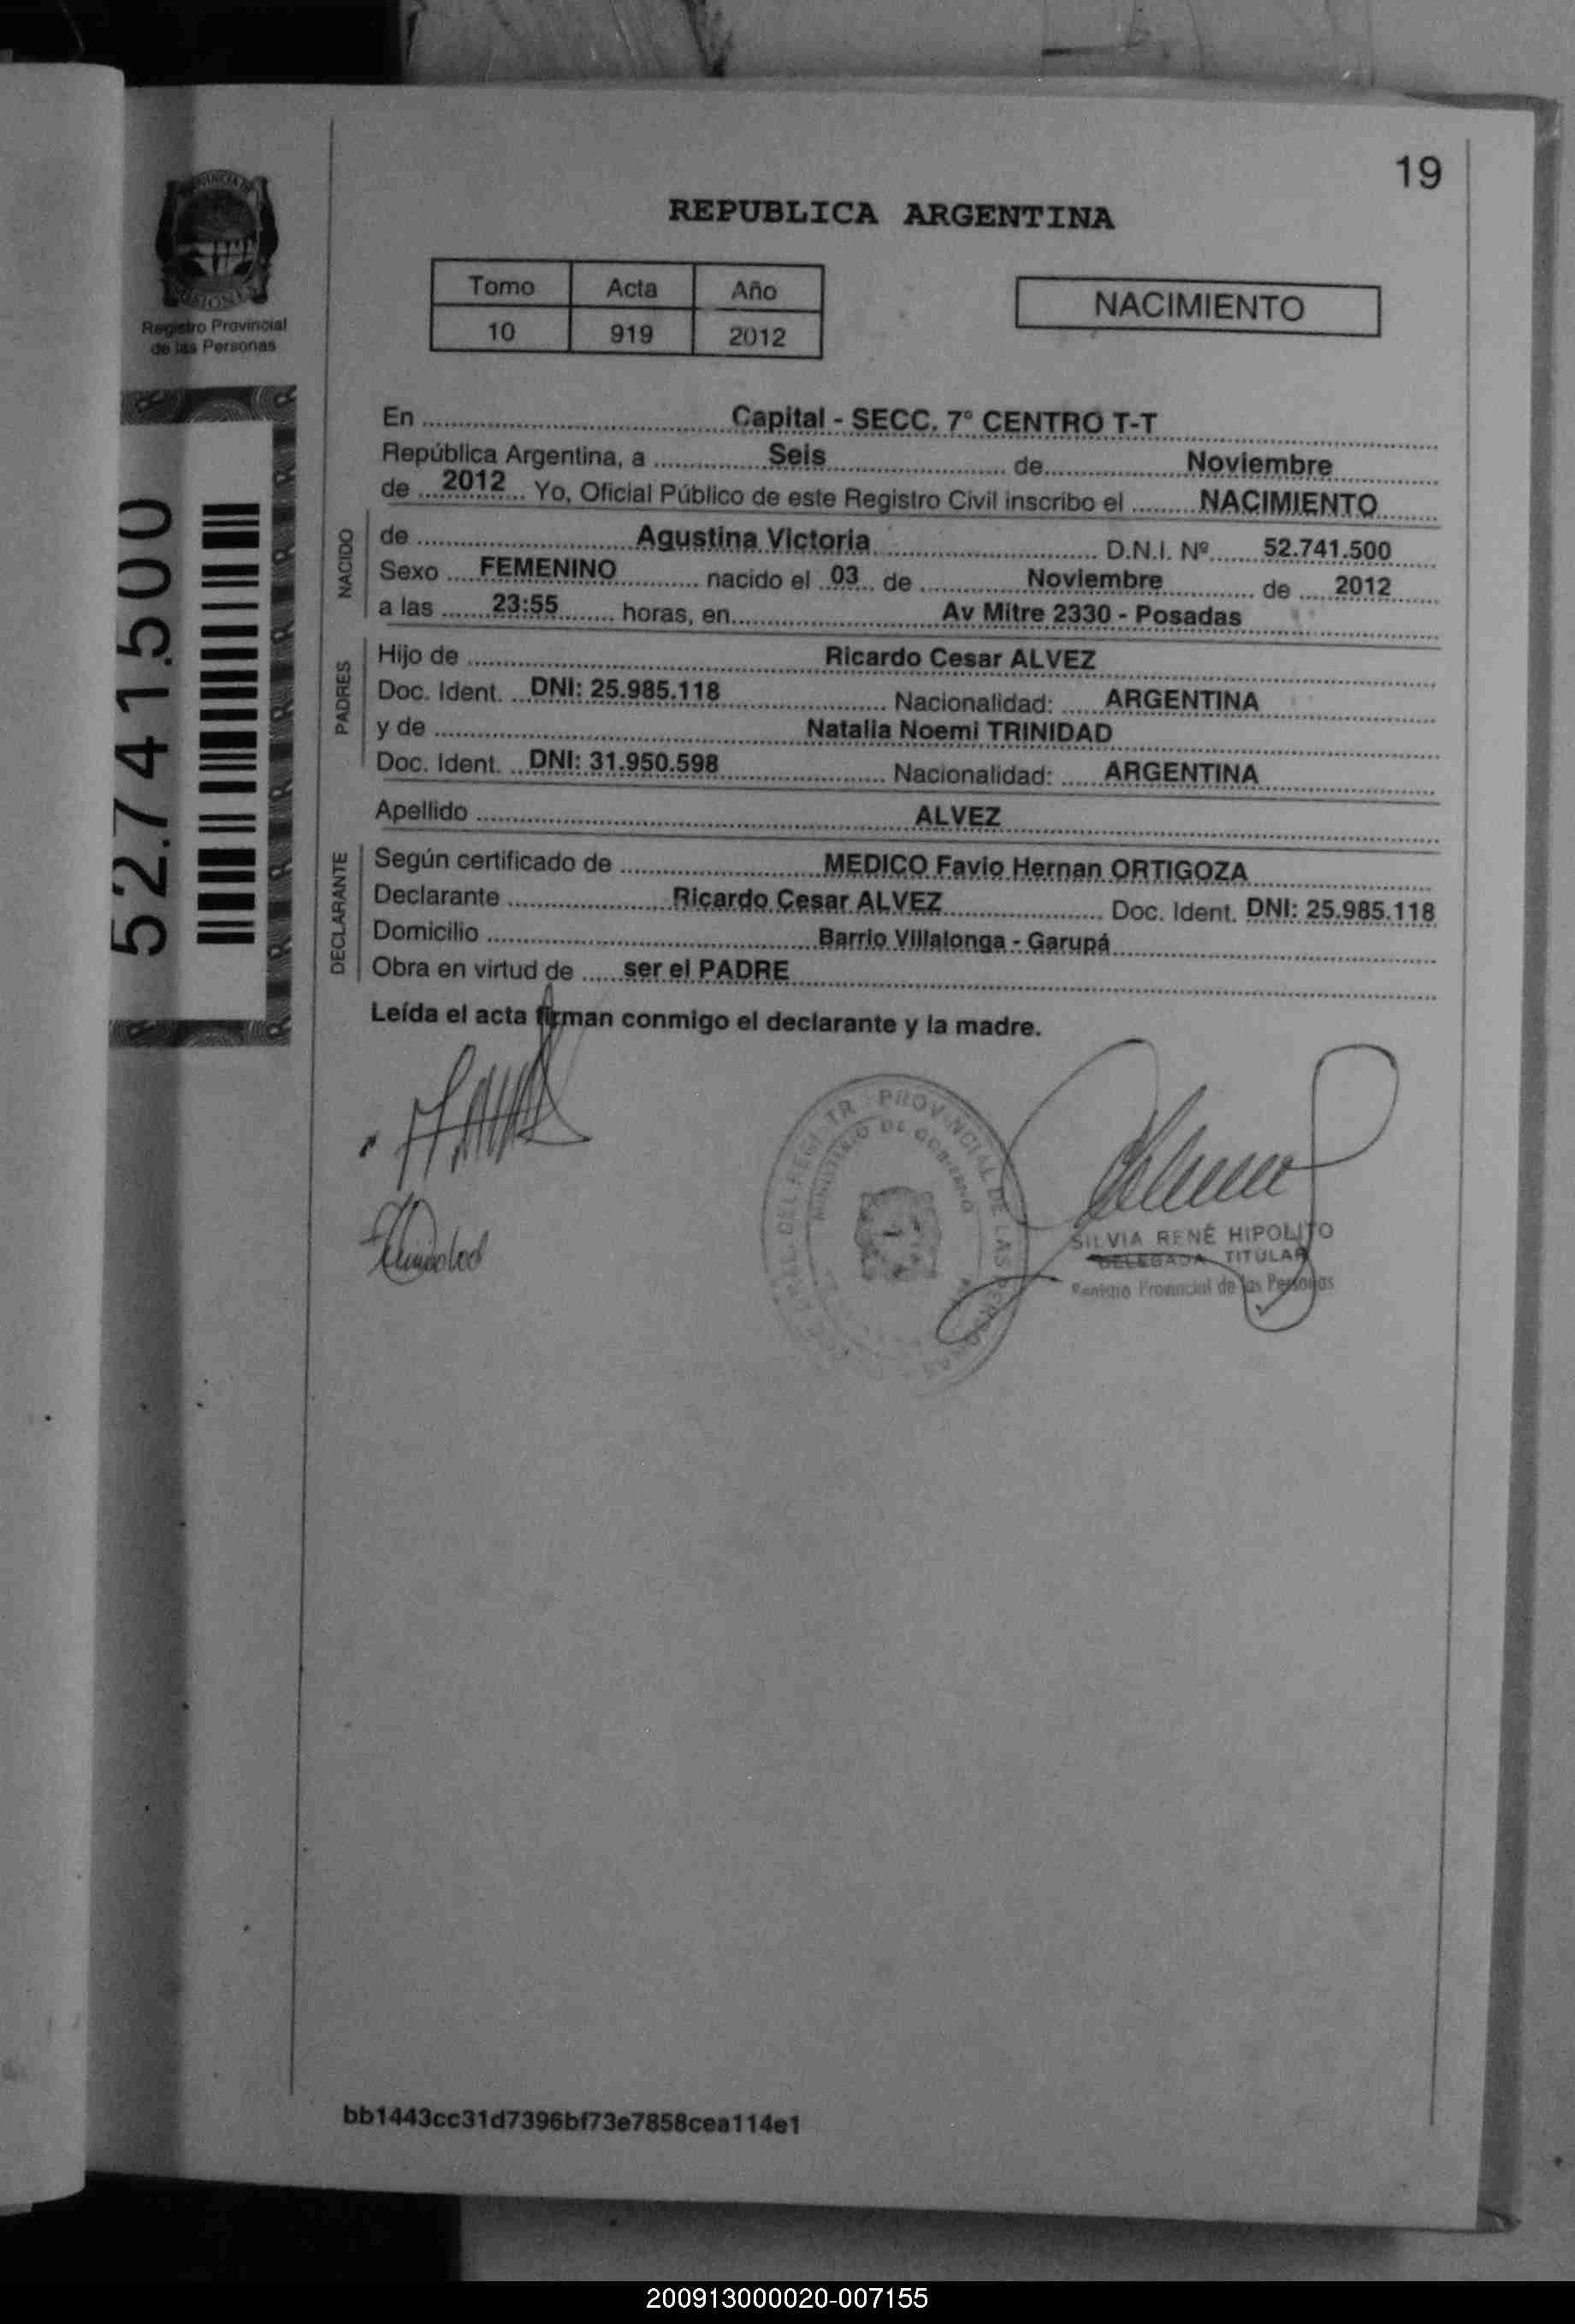 19
REPUBLICA ARGENTINA
PROVINCIA DE
MISIONES
Registro Provincial
de las Personas
Tomo Acta Año
10 919 2012
NACIMIENTO
52.741.500
En Capital - SECC. 7º CENTRO T-T
República Argentina, a Seis de Noviembre
de 2012 Yo, Oficial Público de este Registro Civil inscribo el NACIMIENTO
NACIDO
de Agustina Victoria D.N.I. Nº 52.741.500
Sexo FEMENINO nacido el 03 de Noviembre de 2012
a las 23:55 horas, en Av Mitre 2330 - Posadas
PADRES
Hijo de Ricardo Cesar ALVEZ
Doc. Ident. DNI: 25.985.118 Nacionalidad: ARGENTINA
y de Natalia Noemi TRINIDAD
Doc. Ident. DNI: 31.950.598 Nacionalidad: ARGENTINA
Apellido ALVEZ
DECLARANTE
Según certificado de MEDICO Favio Hernan ORTIGOZA
Declarante Ricardo Cesar ALVEZ Doc. Ident. DNI: 25.985.118
Domicilio Barrio Villalonga - Garupá
Obra en virtud de ser el PADRE
Leída el acta firman conmigo el declarante y la madre.
PROVINCIAL DE LAS PERSONAS
MINISTERIO DE GOBIERNO
SILVIA RENÉ HIPOLITO
DELEGADA TITULAR
Registro Provincial de las Personas
bb1443cc31d7396bf73e7858cea114e1
200913000020-007155